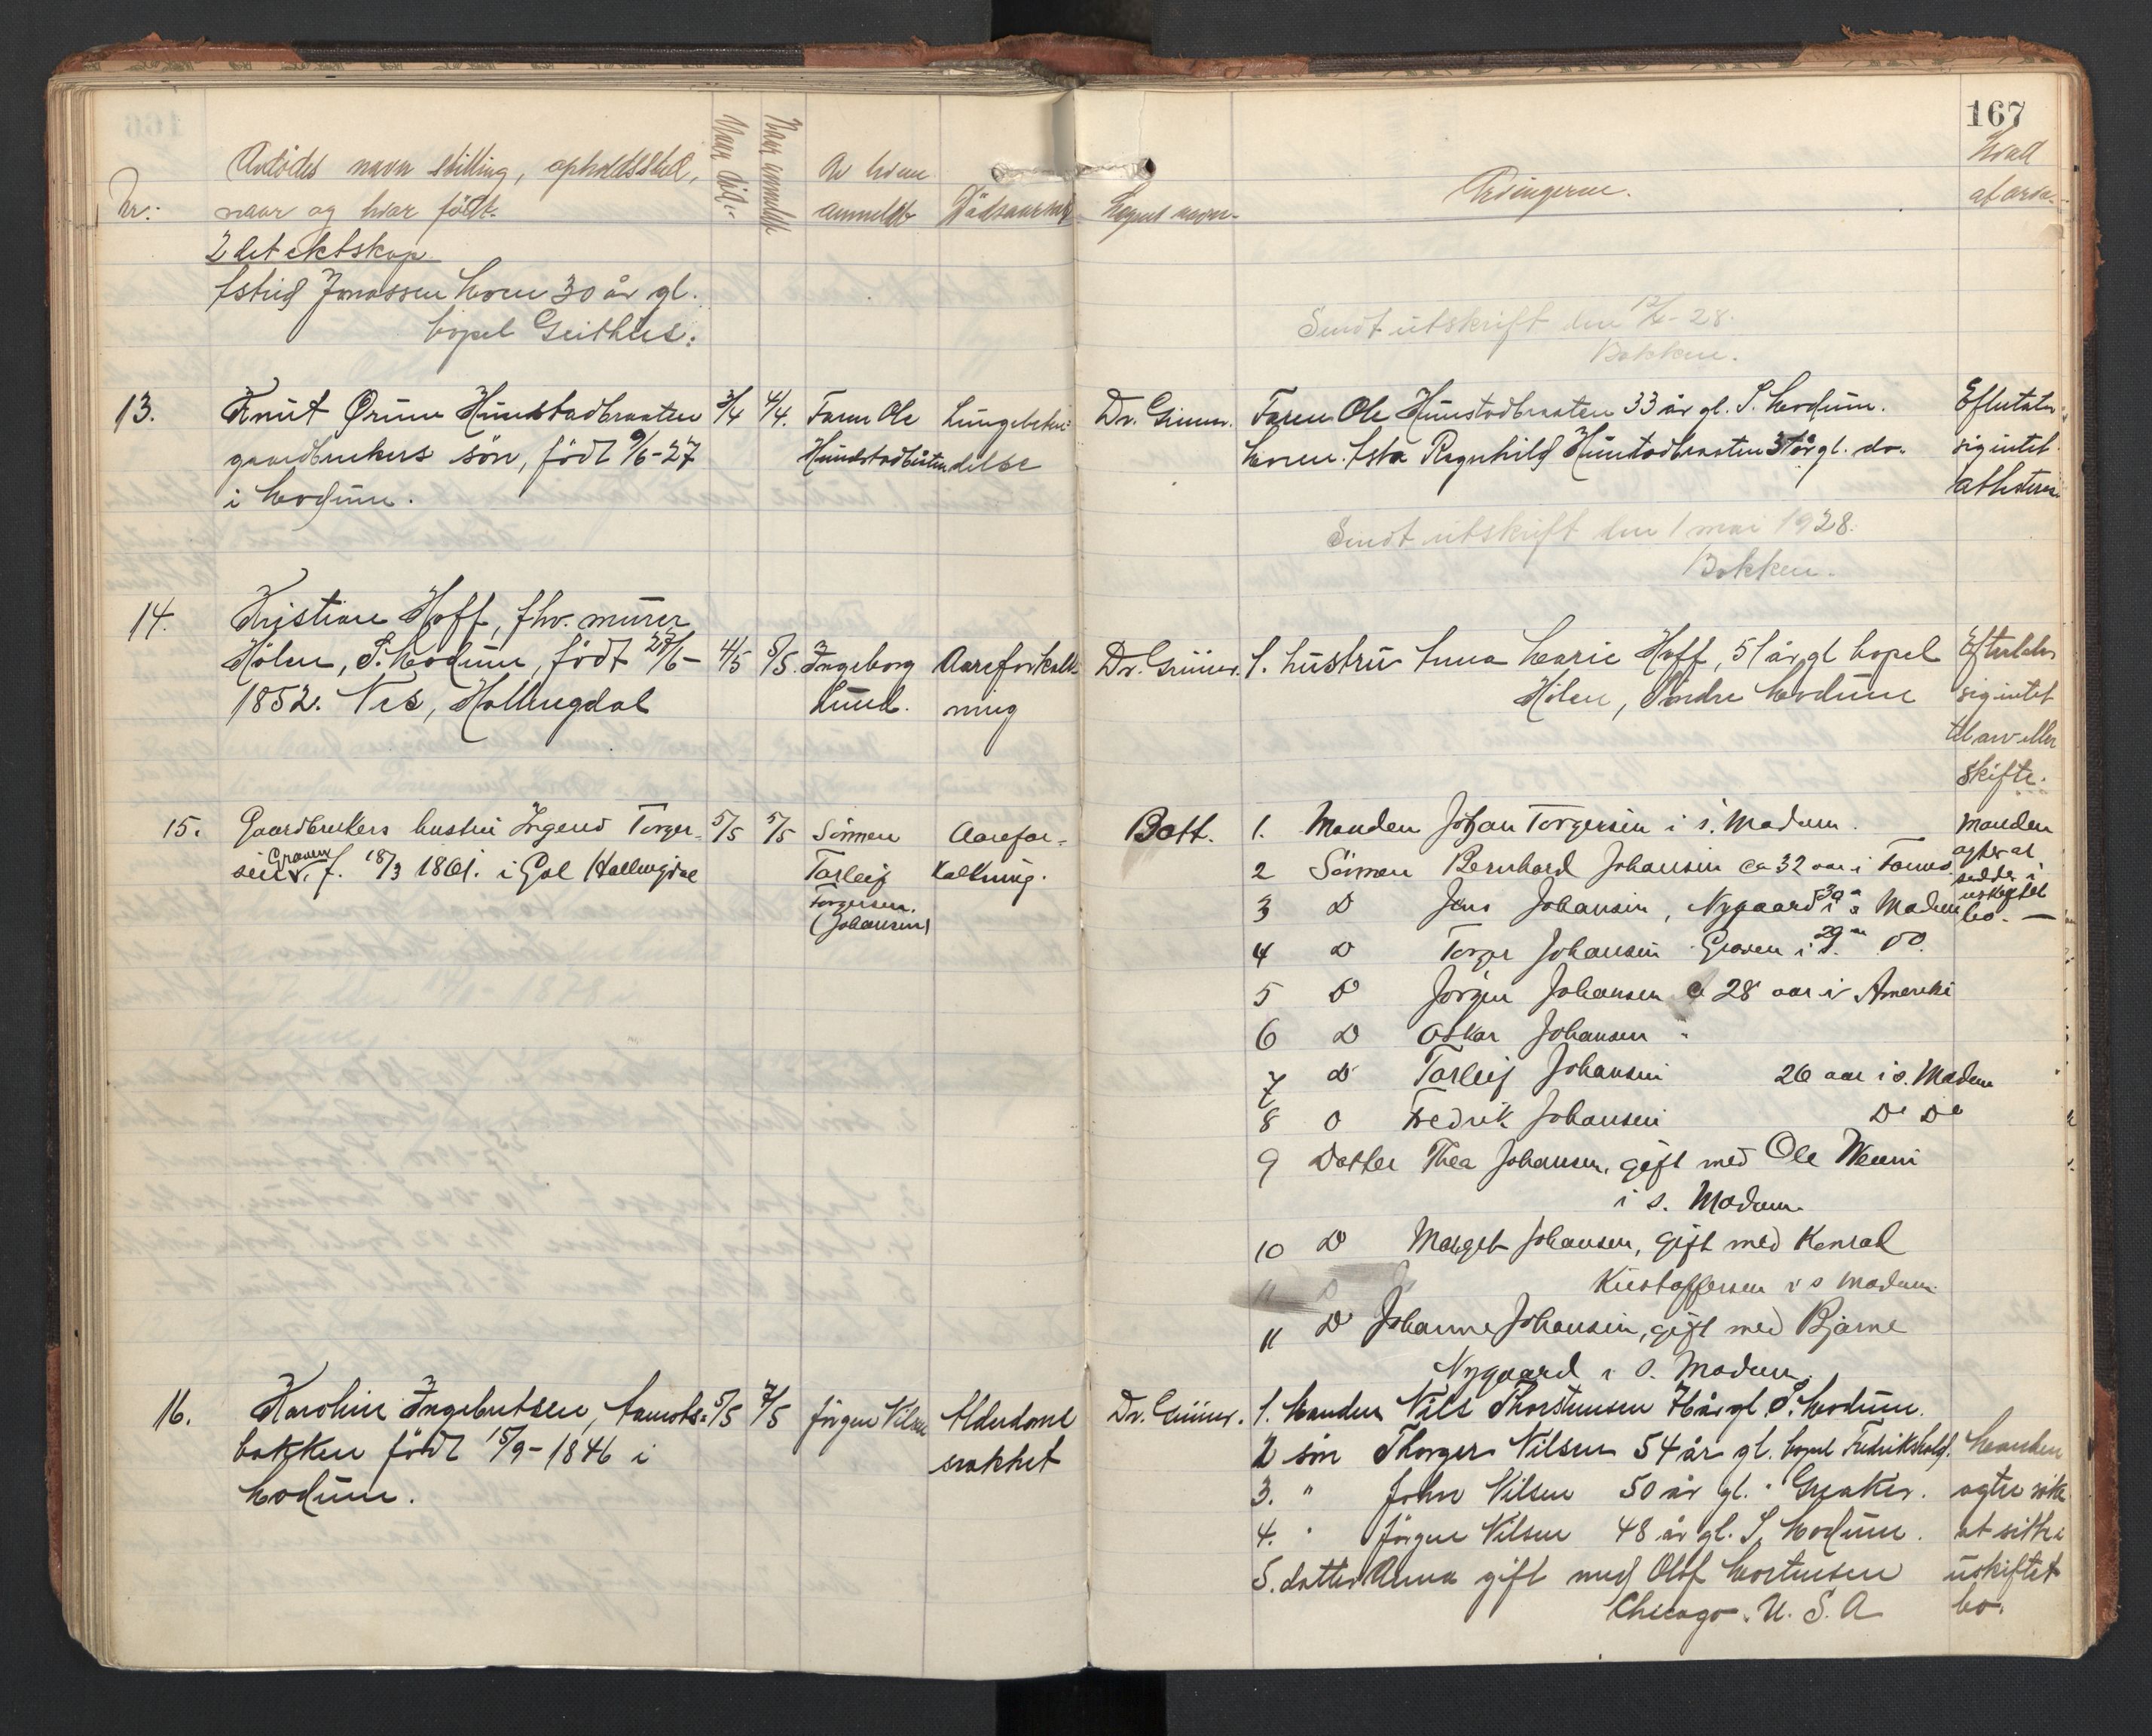 167
Nr:
Avdødes navn stilling, opholdssted,
naar og hvor född.
Naar död:
Naar anmeldt
Av hvem
anmeldt
Dödsaarsak
Lægens navn
Arvingerne.
Hvad
2 det ektskap
Jonassen Moen 30 år gl.
bopel Geithus.
Sendt utskrift den 12/4-28.
Bakken.
13.
Knut Ørum Hunstadbraaten
gaardbrukers sön, född 9/6-27
i Modum.
3/4
4/4.
Faren Ole
Lungebeten-
delse
Faren Ole Hunstadbraaten 33 år gl. S. Modum.
Ragnhild Hunstadbraaten 31 år gl. do.
Efterlater
sig intet
Sendt utskrift den 1 mai 1928.
Bakken.
14.
Kristian Hoff, fhv. murer
Hölen, S. Modum, född 27/6-
1852. Nes, Hallingdal
4/5
8/5.
Ingeborg
Lund.
Aareforkalk-
ning
1. hustru Anna Marie Hoff, 51 år gl bopel
Hölen, Söndre Modum
Efterlater
sig intet
til arv eller
skifte.
15.
Gaardbrukers hustru Ingerid Torger-
sen Graven f. 18/3 1861. i Gol Hallingdal
5/5
5/5
Sönnen
Torleif
Torgersen.
(Johansen)
Aarefor-
kalkning.
Bott.
1. Manden Johan Torgersen i s. Modum.
2 Sönnen Bernhard Johansen ca 32 aar i
3 D Jens Johansen, Nygaard 30 i s Modum
4 D Torger Johansen Graven i 29 S. DO.
5 D Jörgen Johansen 28 aar i Amerika
6 D Oskar Johansen "
7 D Torleif Johansen 26 aar i s. Modum
8 D Fredrik Johansen Do Do
9 Datter Thea Johansen, gift med Ole
i s. Modum.
10 D Marget Johansen, gift med Konrad
Kristoffersen i s Modum.
11 D Johanne Johansen, gift med Bjarne
Nygaard i s. Modum.
Manden
agter at
sidde i
uskiftet
bo. —
16.
Karoline Ingebretsen, Aamots-
bakken född 15/9-1846 i
Modum.
5/5
7/5
Jörgen Nilsen
Alderdoms
svakhet
1. Manden Nils Thorstensen år gl S. Modum.
2 sön Thorger Nilsen 54 år gl. bopel Fredrikshald.
3. " John Nilsen 50 år gl. " Greaker.
4. " Jörgen Nilsen 48 år gl. S. Modum.
5. datter Anna gift med Olof Mortensen
Chicago. U. S. A
Manden
agter söke
at sitte i
uskiftet
bo.